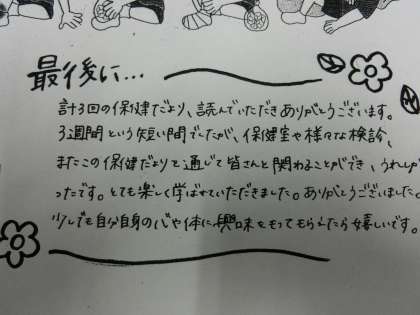 最後に...
計3回の保健だより、読んでいただきありがとうございます。
3週間という短い間でしたが、保健室や様々な検診、
またこの保健だよりを通じて皆さんと関わることができ、うれしか
ったです。とても楽しく学ばせていただきました。ありがとうございました。
少しでも自分自身の心や体に興味をもってもらえたら嬉しいです。